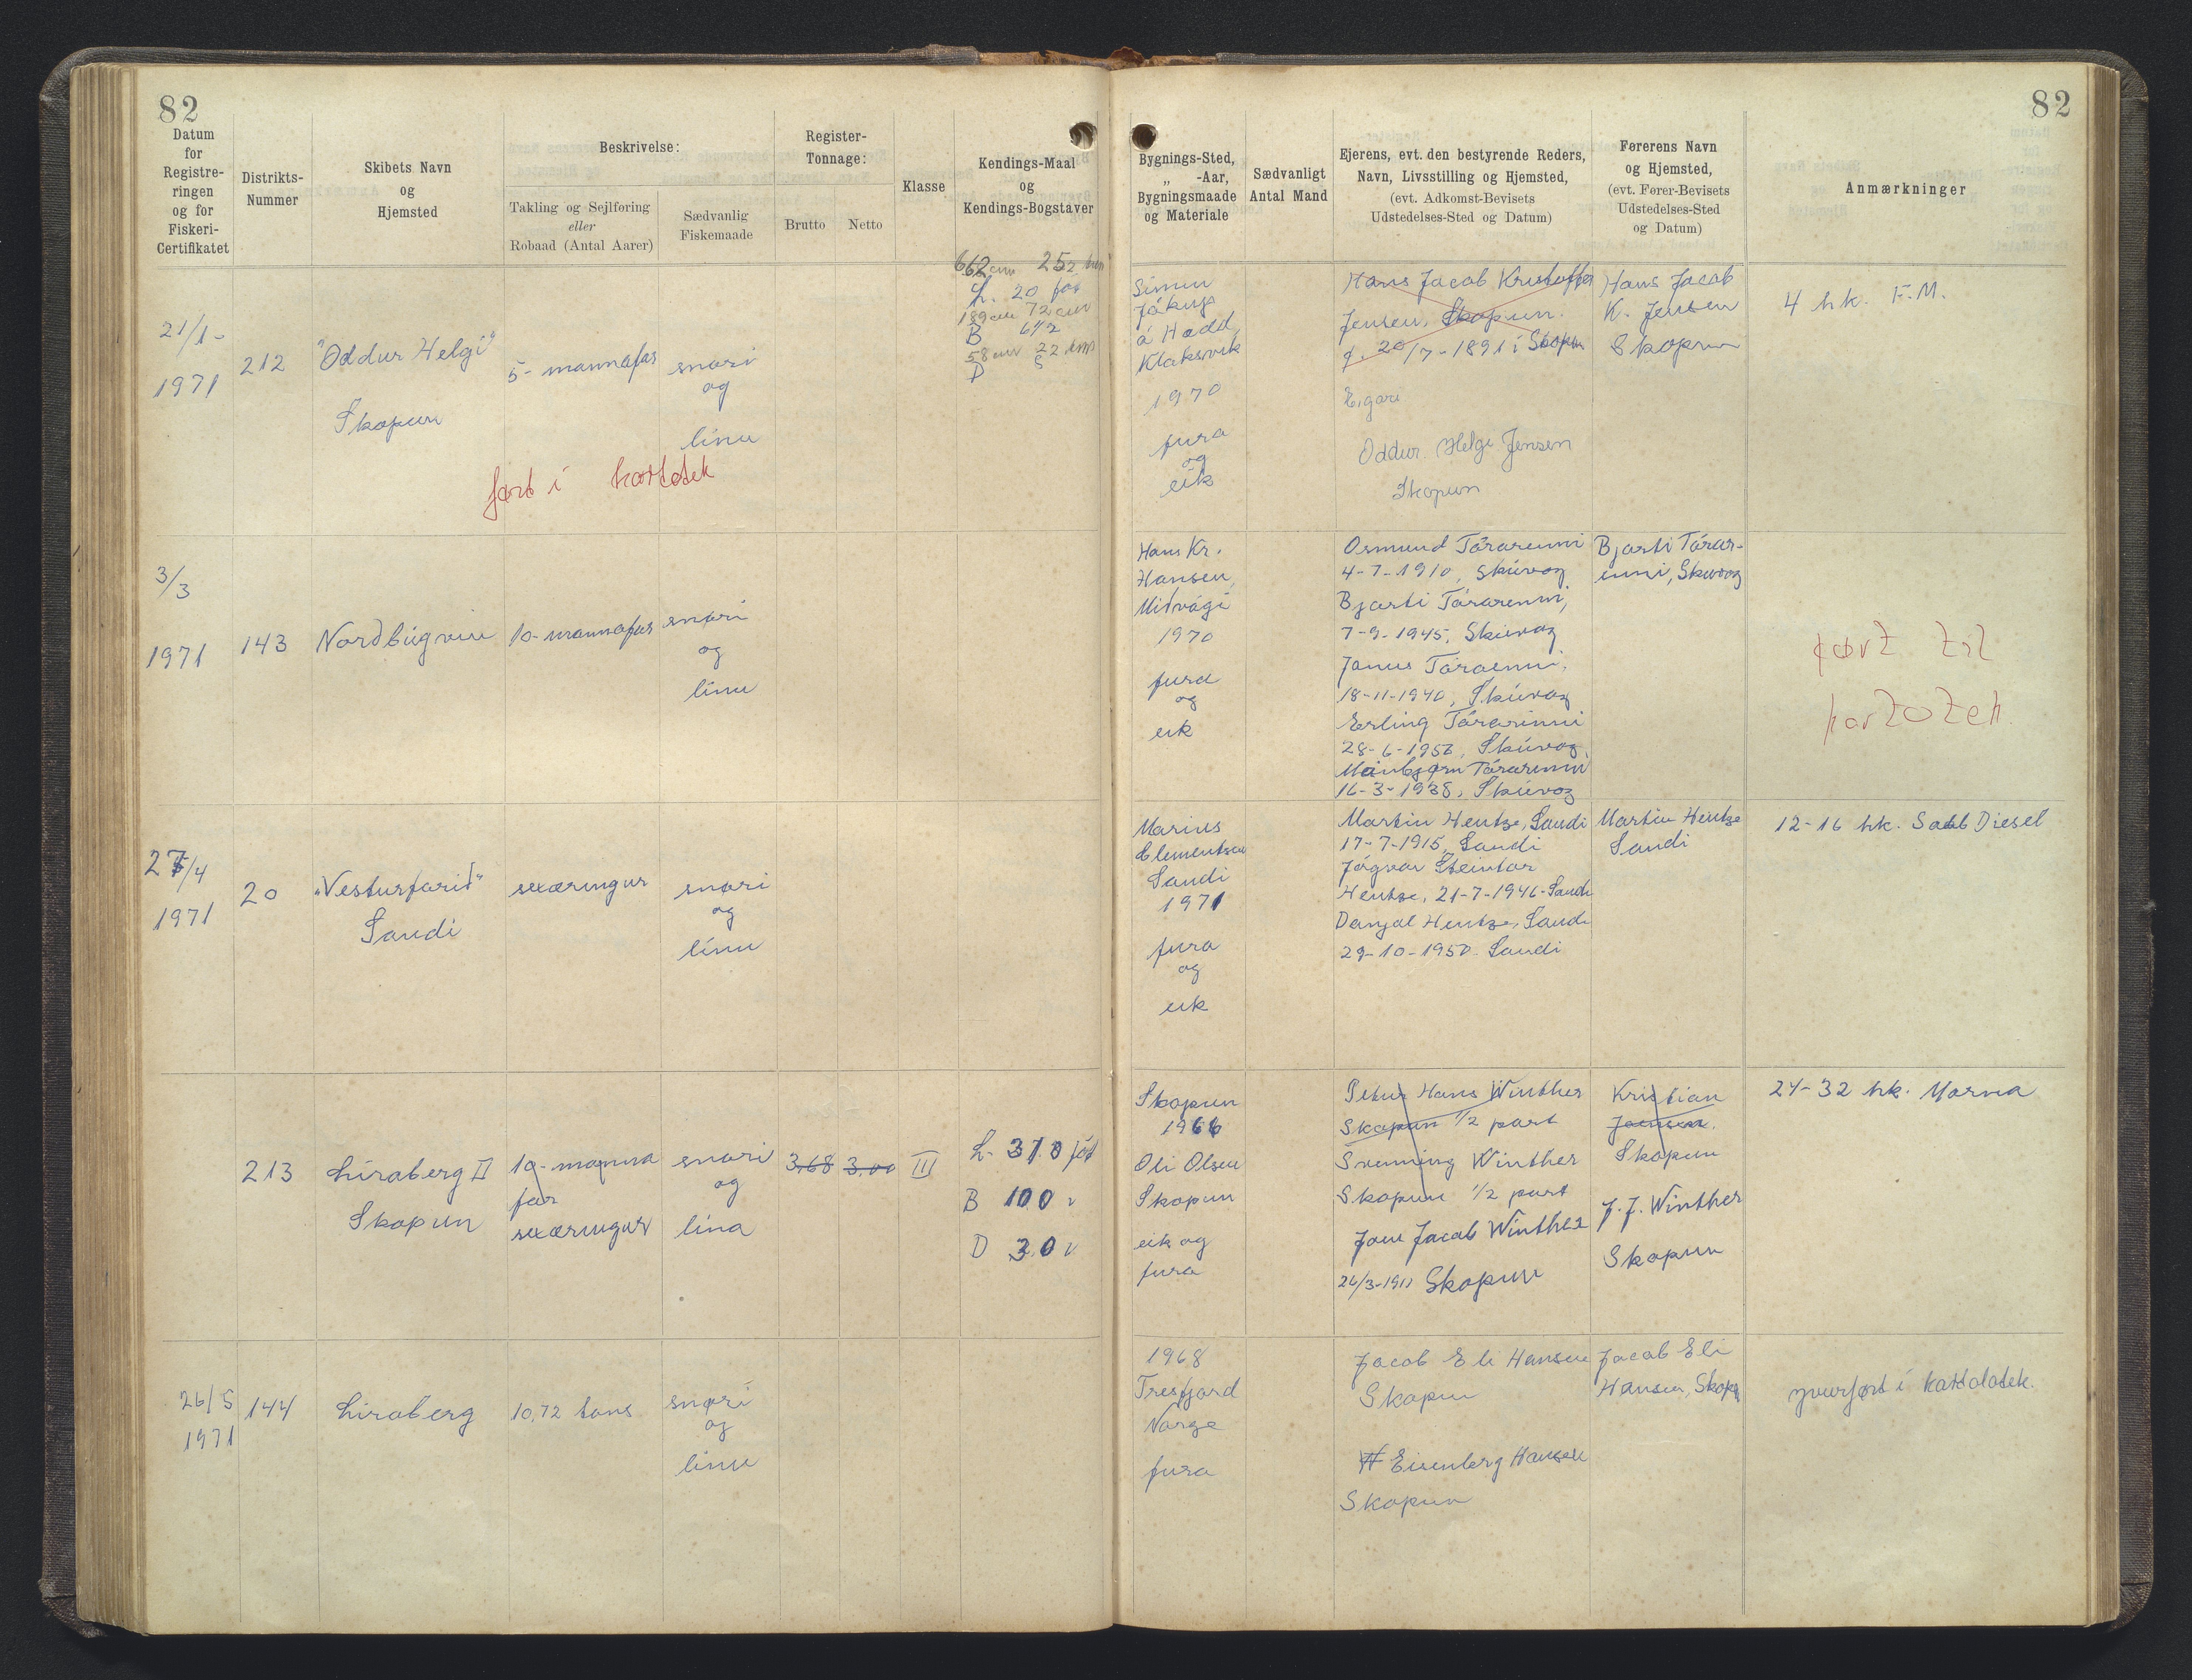 82
Datum
for
Registre-
ringen
og for
Fiskeri-
Certifikatet
Distrikts-
Nummer
Skibets Navn
og
Hjemsted
Beskrivelse:
Takling og Sejlføring
eller
Robaad (Antal Aarer)
Sædvanlig
Fiskemaade
Register-
Tonnage:
Brutto
Netto
Klasse
Kendings-Maal
og
Kendings-Bogstaver
21/1-
1971
212
"Oddur Helgi"
Skopun
5- mannafar
snøri
og
línu
662 cm 252
L. 20 fót
189 cm 72 cm
B 6 1/2
58 cm 22
D
ført í kartotek
3/3
1971
143
Nordbúgvin
10- mannafar
snøri
og
línu
27/4
1971
20
"Vesturfarið"
Sandi
seksæringur
snøri
og
línu
213
Líraberg II
Skopun
10- manna
far
seksæringur
snøri
og
lína
3,68
3,00
III
L- 31.0 fót
B 10.0 "
D 3.0 "
26/5
1971
144
Líraberg
10,72 tons
snøri
og
línu
82
Bygnings-Sted,
„ -Aar,
Bygningsmaade
og Materiale
Sædvanligt
Antal Mand
Ejerens, evt. den bestyrende Reders,
Navn, Livsstilling og Hjemsted,
(evt. Adkomst-Bevisets
Udstedelses-Sted og Datum)
Førerens Navn
og Hjemsted,
(evt. Fører-Bevisets
Udstedelses-Sted
og Datum)
Anmærkninger
Símun
Jákup
á Hædd,
Klaksvík
1970
fura
og
eik
Hans Jacob Kristoffer
Jensen, Skopun.
f. 20/7-1891 í Skopun
Eigari
Oddur Helgi Jensen
Skopun
Hans Jacob
K. Jensen
Skopun
4 hk. F.M.
Hans Kr.
Hansen,
Miðvági
1970
fura
og
eik
Osmund Tórarenni
4-7-1910, Skúvoy
Bjarti Tórarenni,
7-9-1945, Skúvoy
Janus Tórarenni,
18-11-1940, Skúvoy
Erling Tórarinni
28-6-1956, Skúvoy,
Mainbjørn Tórarenni
16-3-1938, Skúvoy
Bjarti Tórar-
enni, Skúvoy
ført til
kartotek
Marius
Clementsen
Sandi
1971
fura
og
eik
Martin Hentze, Sandi
17-7-1915, Sandi
Jógvan Steintor
Hentze, 21-7-1946-Sandi
Danjal Hentze, Sandi
29-10-1950- Sandi
Martin Hentze
Sandi
12-16 hk. Sabb Diesel
Skopun
1966
Oli Olsen
Skopun
eik og
fura
Petur Hans Winther
Skopun 1/2 part
Svenning Winther
Skopun 1/2 part
Jone Jacob Winther
26/3-1911 Skopun
Kristian
Joensen.
Skopun
J. J. Winther
Skopun
24-32 hk. Marna
1968
Tresfjord
Norge
fura
Jacob Eli Hansen
Skopun
Eisenberg Hansen
Skopun
Jacob Eli
Hansen, Skopun
yvurført í kartotek.